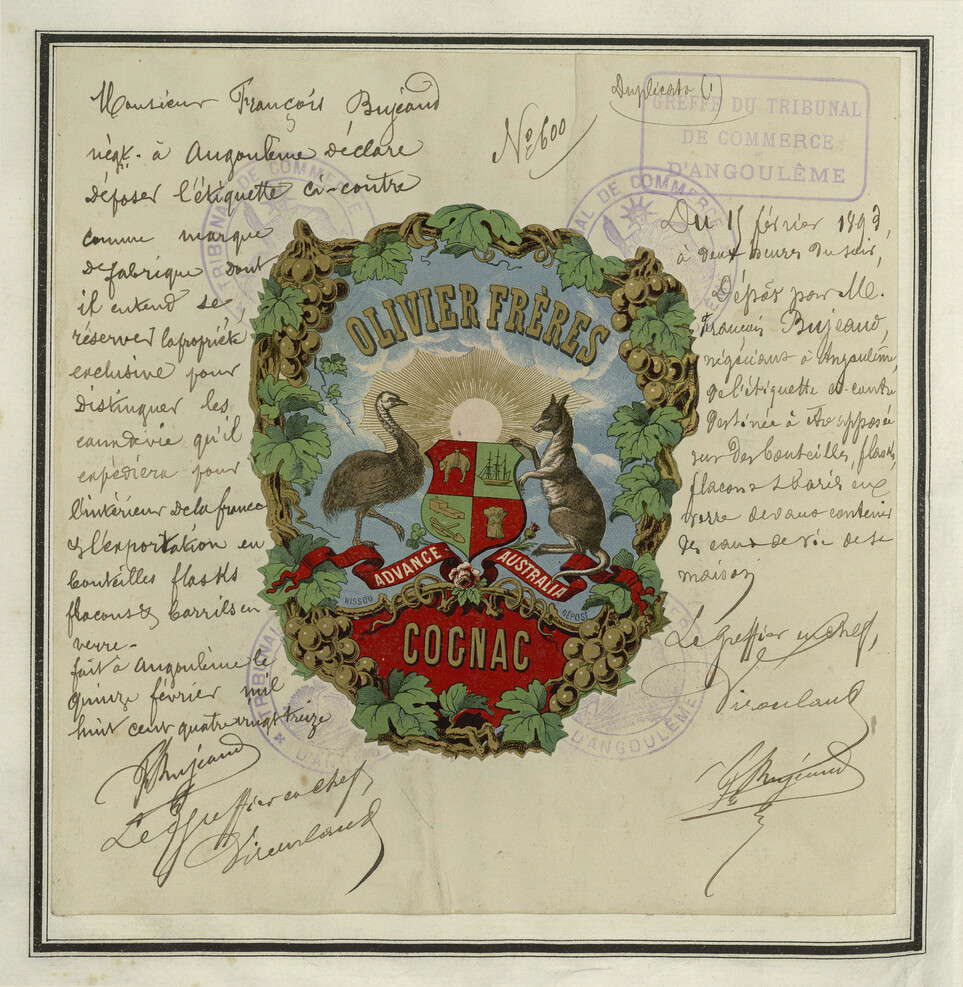 Monsieur François Bujeaud
négt. à Angoulême déclare
déposer l'étiquette ci-contre
comme marque
de fabrique dont
il entend se
réserver la propriété
exclusive pour
distinguer les
eaux de vie qu'il
expédiera pour
l'intérieur de la france
& l'exportation en
bouteilles flasks
flacons & barrils en
verre.
fait à Angoulême le
quinze février mil
huit cent quatre vingt treize
F Bujeaud
Le Greffier en chef,
No 600
Duplicata (1)
GREFFE DU TRIBUNAL
DE COMMERCE
D'ANGOULÊME
TRIBUNAL DE COMMERCE
TRIBUNAL DE COMMERCE
OLIVIER FRÈRES
ADVANCE AUSTRALIA
NISSOU DÉPOSÉ
COGNAC
TRIBUNAL
D'ANGOULÊME
Du 15 février 1893,
à deux heures du soir,
Dépôt par M.
François Bujeaud,
négociant à Angoulême,
de l'étiquette ci-contre
destinée à être apposée
sur des bouteilles, flasks,
flacons & barils en
verre devant contenir
des eaux-de-vie de sa
maison
Le Greffier en chef,
F Bujeaud